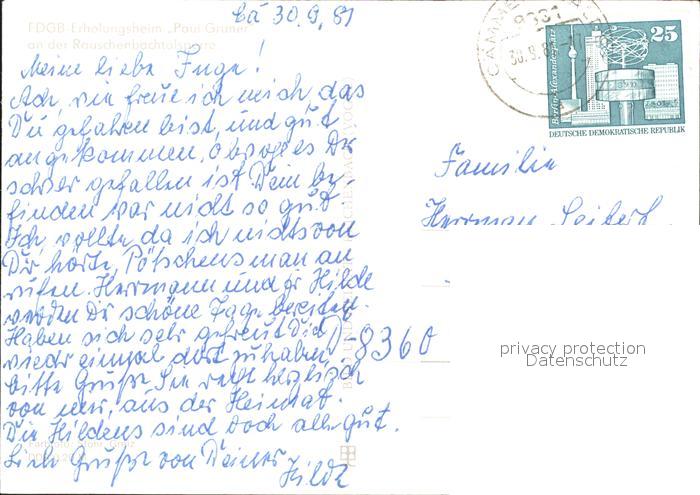 Cä 30.9.81
FDGB Erholungsheim „Paul Gruner"
an der Rauschenbachtalsperre
Meine liebe Inge!
Ach, wie freue ich mich, das
Du gefahren bist, und gut
angekommen, obwohl es Dir
schwer gefallen ist Dein be-
finden war nicht so gut
Ich wollte, da ich nichts von
Dir hörte, Pötschens mal an
rufen. Herrmann und Hilde
werden Dir schöne Tage bereiten.
Haben sich sehr gefreut Dich
wieder einmal dort zu haben,
bitte Grüße Sie recht herzlich
von mir, aus der Heimat.
Die Hildens sind doch alle gut.
Liebe Grüße von Deiner
Hilde
25
Berlin-Alexanderplatz
DEUTSCHE DEMOKRATISCHE REPUBLIK
8331
30.9.81
Familie
Herrman Seifert
D-8360
privacy protection
Datenschutz